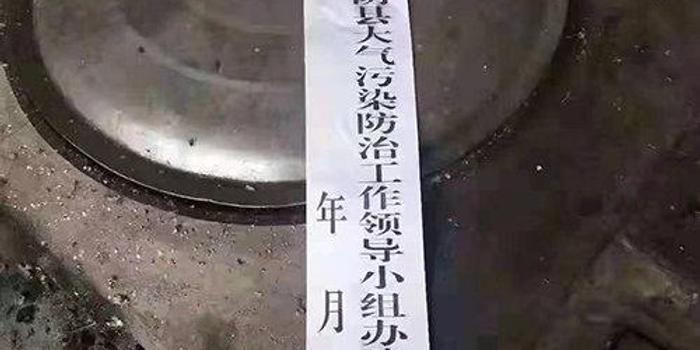 县大气污染防治工作领导小组办
年 月